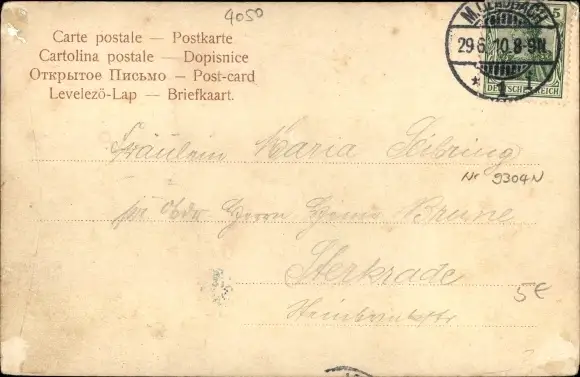 4050
Carte postale — Postkarte
Cartolina postale — Dopisnice
Открытое Письмо — Post-card
Levelező-Lap — Briefkaart.
M. GLADBACH
29.6.10.8-9N.
* 1
5
DEUTSCHES REICH
Fräulein Maria
Nr 9304N
Herrn Brune
Sterkrade
5€